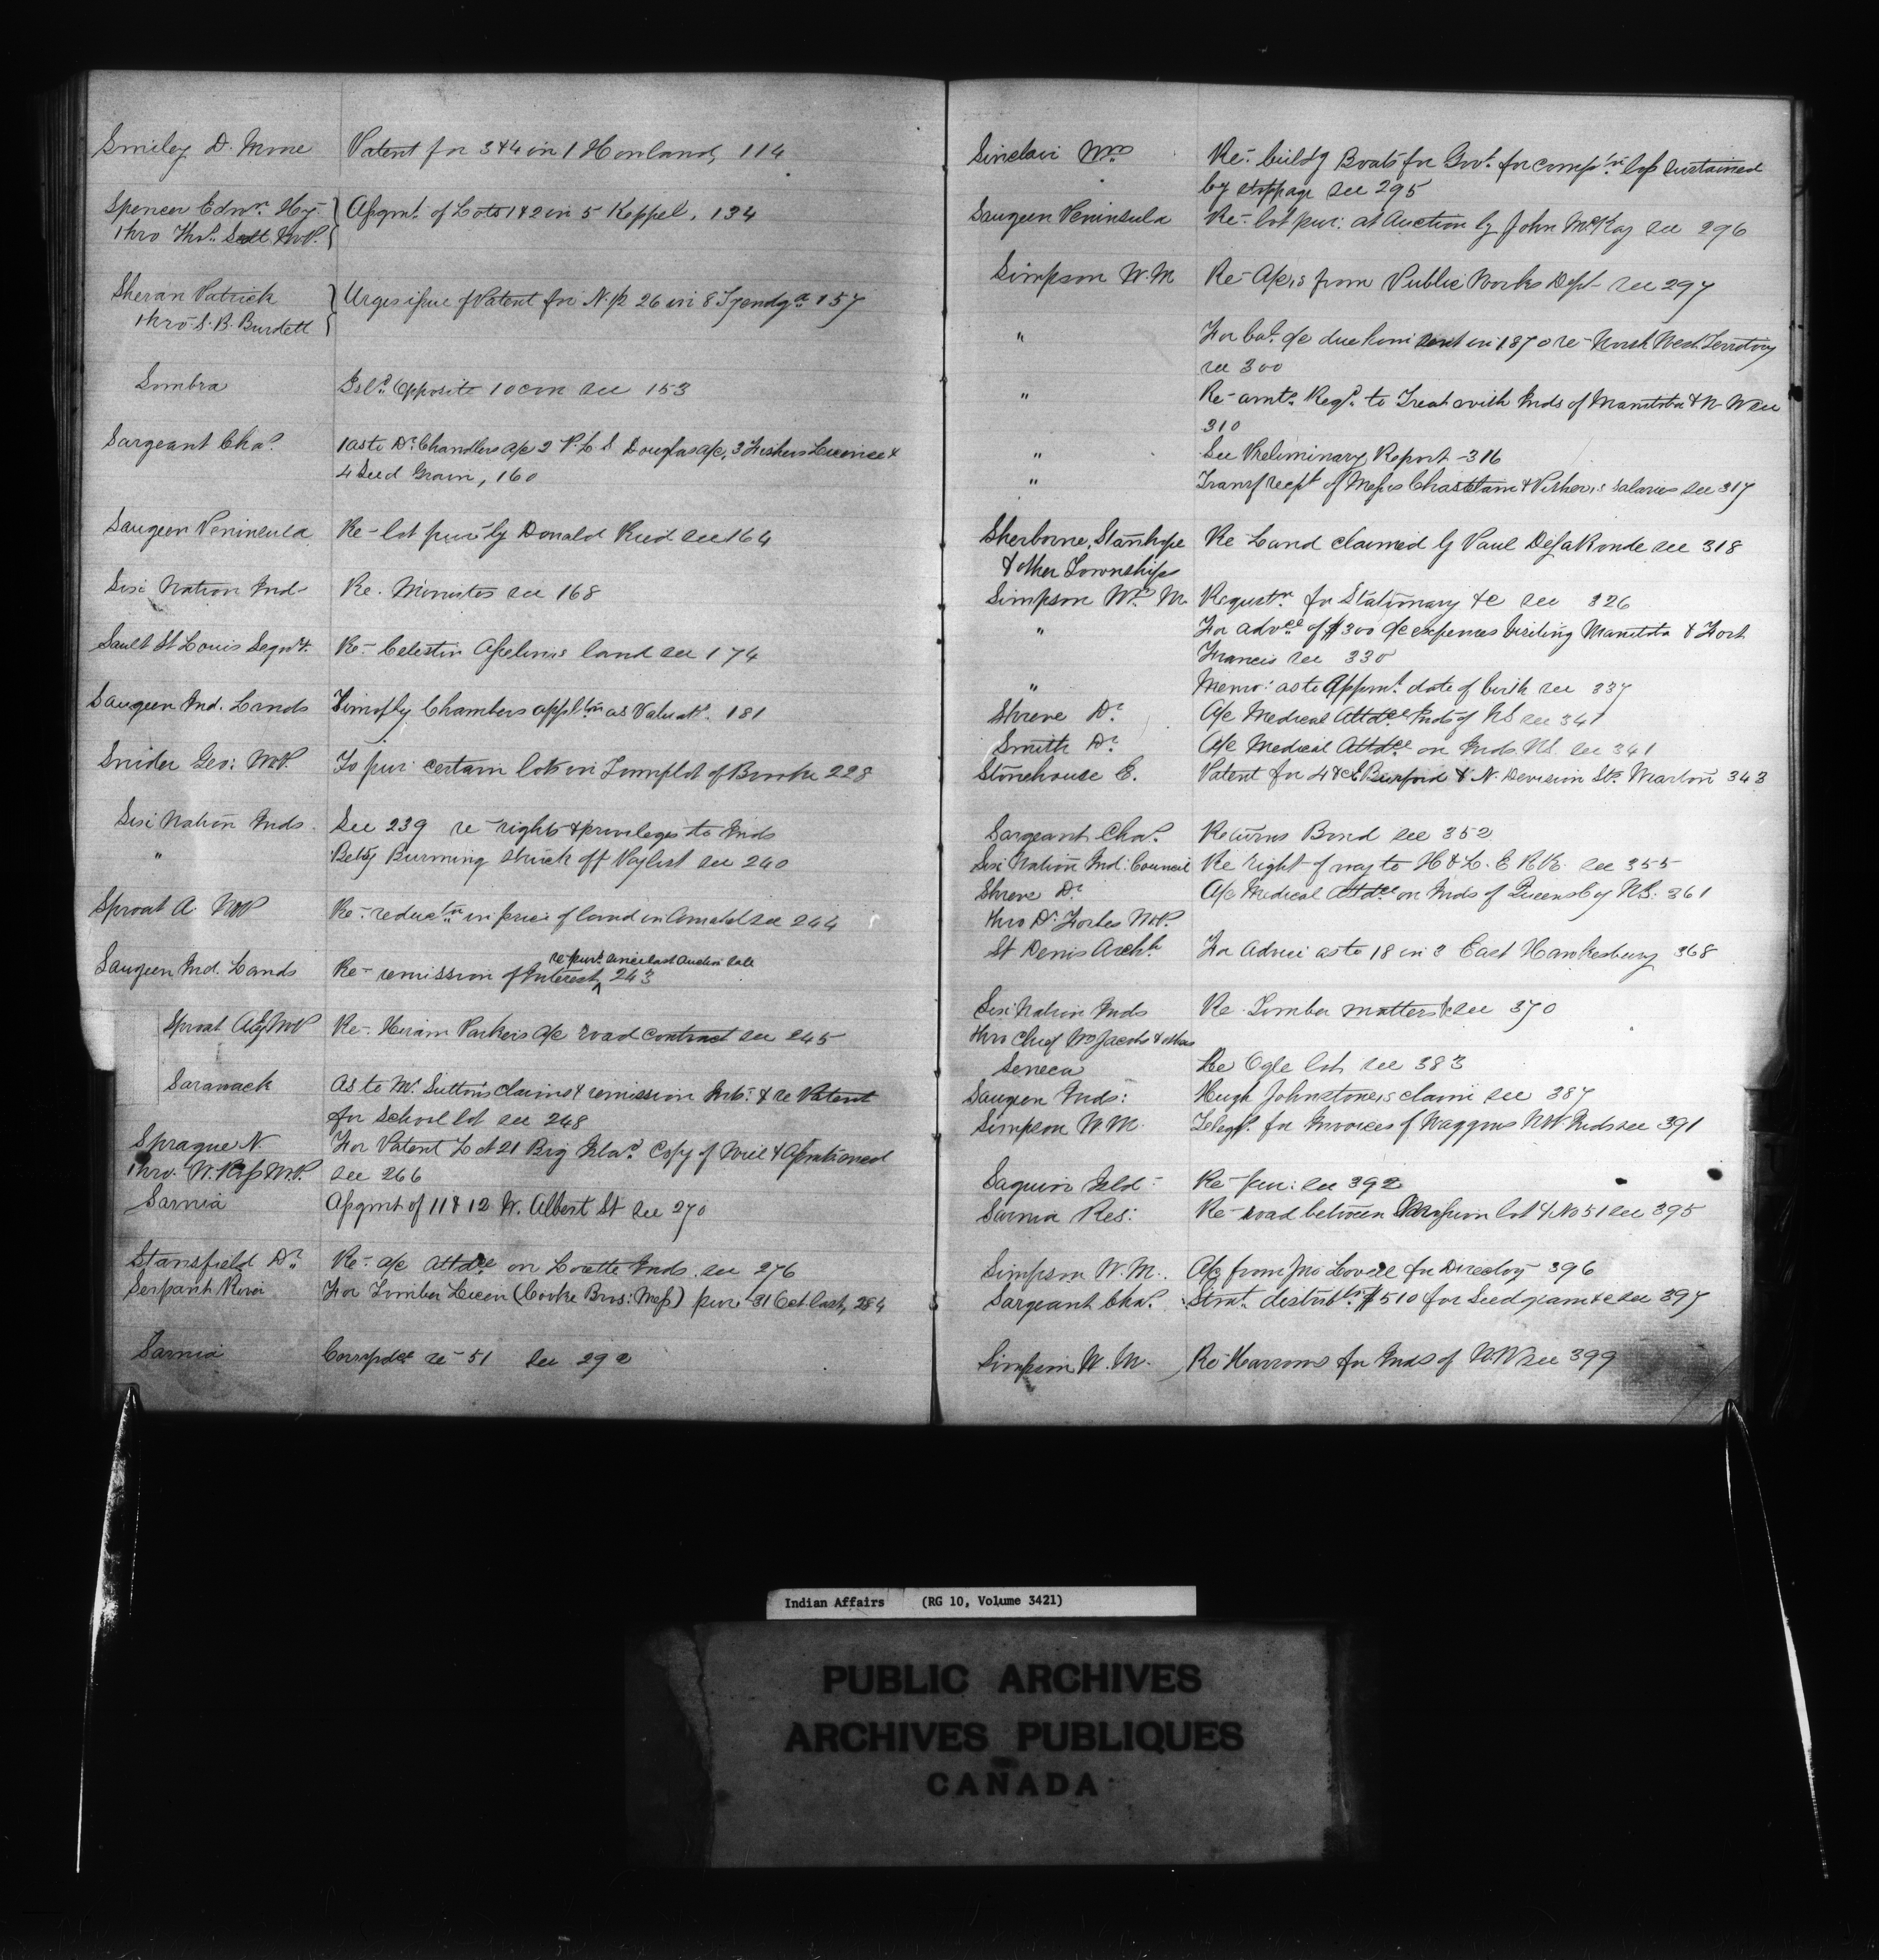 Smiley D. Mone Patent for 3 & 4 in 1 Howland, 114
Spencer Edwr. Hy. Asgmt. of Lots 1 & 2 in 5 Keppel, 134
thro Thos. Scott M.P.
Sheran Patrick Urges issue of Patent for N. 1/2 26 in 8 Tyendga. 157
thro S. B. Burdett
Sombra Isld. Opposite 10 con see 153
Sargeant Chas. 1 as to Dr. Chandlers a/c 2 P. L. S. Douglas a/c, 3 Fishers Licence &
4 Seed Grain, 160
Saugeen Peninsula Re- lot pur by Donald Reid see 164
Six Nation Ind- Re. Minutes see 168
Sault St Louis Segnt. Re- Celestin Aselin's land see 174
Saugeen Ind. Lands Timothy Chambers applin as Valuatr. 181
Snider Geo: M.P. To pur certain lots in Townplot of Brooke 228
Six Nation Inds. See 239 re rights & privileges to Inds
" Betsy Burning struck off Paylist see 240
Sproat A. M.P. Re- reductn in price of land in Amabel see 244
re purs. since last Auction Sale
Saugeen Ind. Lands Re- remission of Interest, 243
Sproat Alex M.P. Re- Hiram Parker's a/c road contract see 245
Sarawack As to Mr. Sutton's claim & remission Int: & re Patent
for School lot see 248
Sprague N For Patent Lot 21 Big Islad. Copy of Will &
thro: W. Ross M.P. see 266
Sarnia Asgmt of 11 & 12 W. Albert St see 270
Stansfield Dr. Re- a/c Attdce on Lorette Inds. see 276
Serpant River For Timber Licen (Cooke Bros: Mess) pur 31 Oct last, 284
Sarnia Corrspdce re- 51 see 292
Sinclair Wm Re- buildg Boats for Govt. for compn. loss sustained
by stoppage see 295
Saugeen Peninsula Re- lot pur: at Auction by John McKay see 296
Simpson W. M Re- A/c's from Public Works Dept- see 297
" For bal. a/c due him sent in 1870 re- North West Territory
see 300
" Re- amts. Reqd. to Treat with Inds of Manitoba & N-W see
310
" See Preliminary Report - 316
" Transf rcept of Messrs Chastelain & Pither's salaries see 317
Sherborne, Stanhope Re Land claimed by Paul DeLaRonde see 318
& other Townships
Simpson Wm. M. Requstn for Stationary &c see 326
" For advce of $300 a/c expenses visiting Manitoba & Fort
Francis see 330
" Memo: as to Appmt. date of birth see 337
Shreve Dr. A/c Medical Attdce Inds of NS see 341
Smith Dr. A/c Medical Attdce on Inds. NS. see 341
Stonehouse E. Patent for 4 & E Burford & N. Devision Sts. Wiarton 343
Sargeant Chas. Returns Bond see 352
Six Nation Ind: Council Re right of way to H & L. E R.R. see 355
Shreve Dr. A/c Medical Attdce on Inds of Queens Coy NS: 361
thro Dr. Forbes M.P.
St Denis Archd. For advice as to 18 in 3 East Hawkesbury 368
Six Nation Inds Re- Timber matters &c see 370
thro Chief Wm Jacobs & others
Seneca Re Ogle lot see 383
Saugeen Inds: Hugh Johnstone's claim see 387
Simpson W M. Telegh. for Invoices of Waggons N.W. Inds see 391
Isld- Re- pur: see 392
Sarnia Res: Re- road between Mission lot & No 51 see 395
Simpson W. M. A/c from Jno Lovell for Directory 396
Sargeant Chas. Statt. distribts. $510 for Seed grain &c see 397
Simpson W. M. Re Harrows for Inds of N.W see 399
Indian Affairs (RG 10, Volume 3421)
PUBLIC ARCHIVES
ARCHIVES PUBLIQUES
CANADA